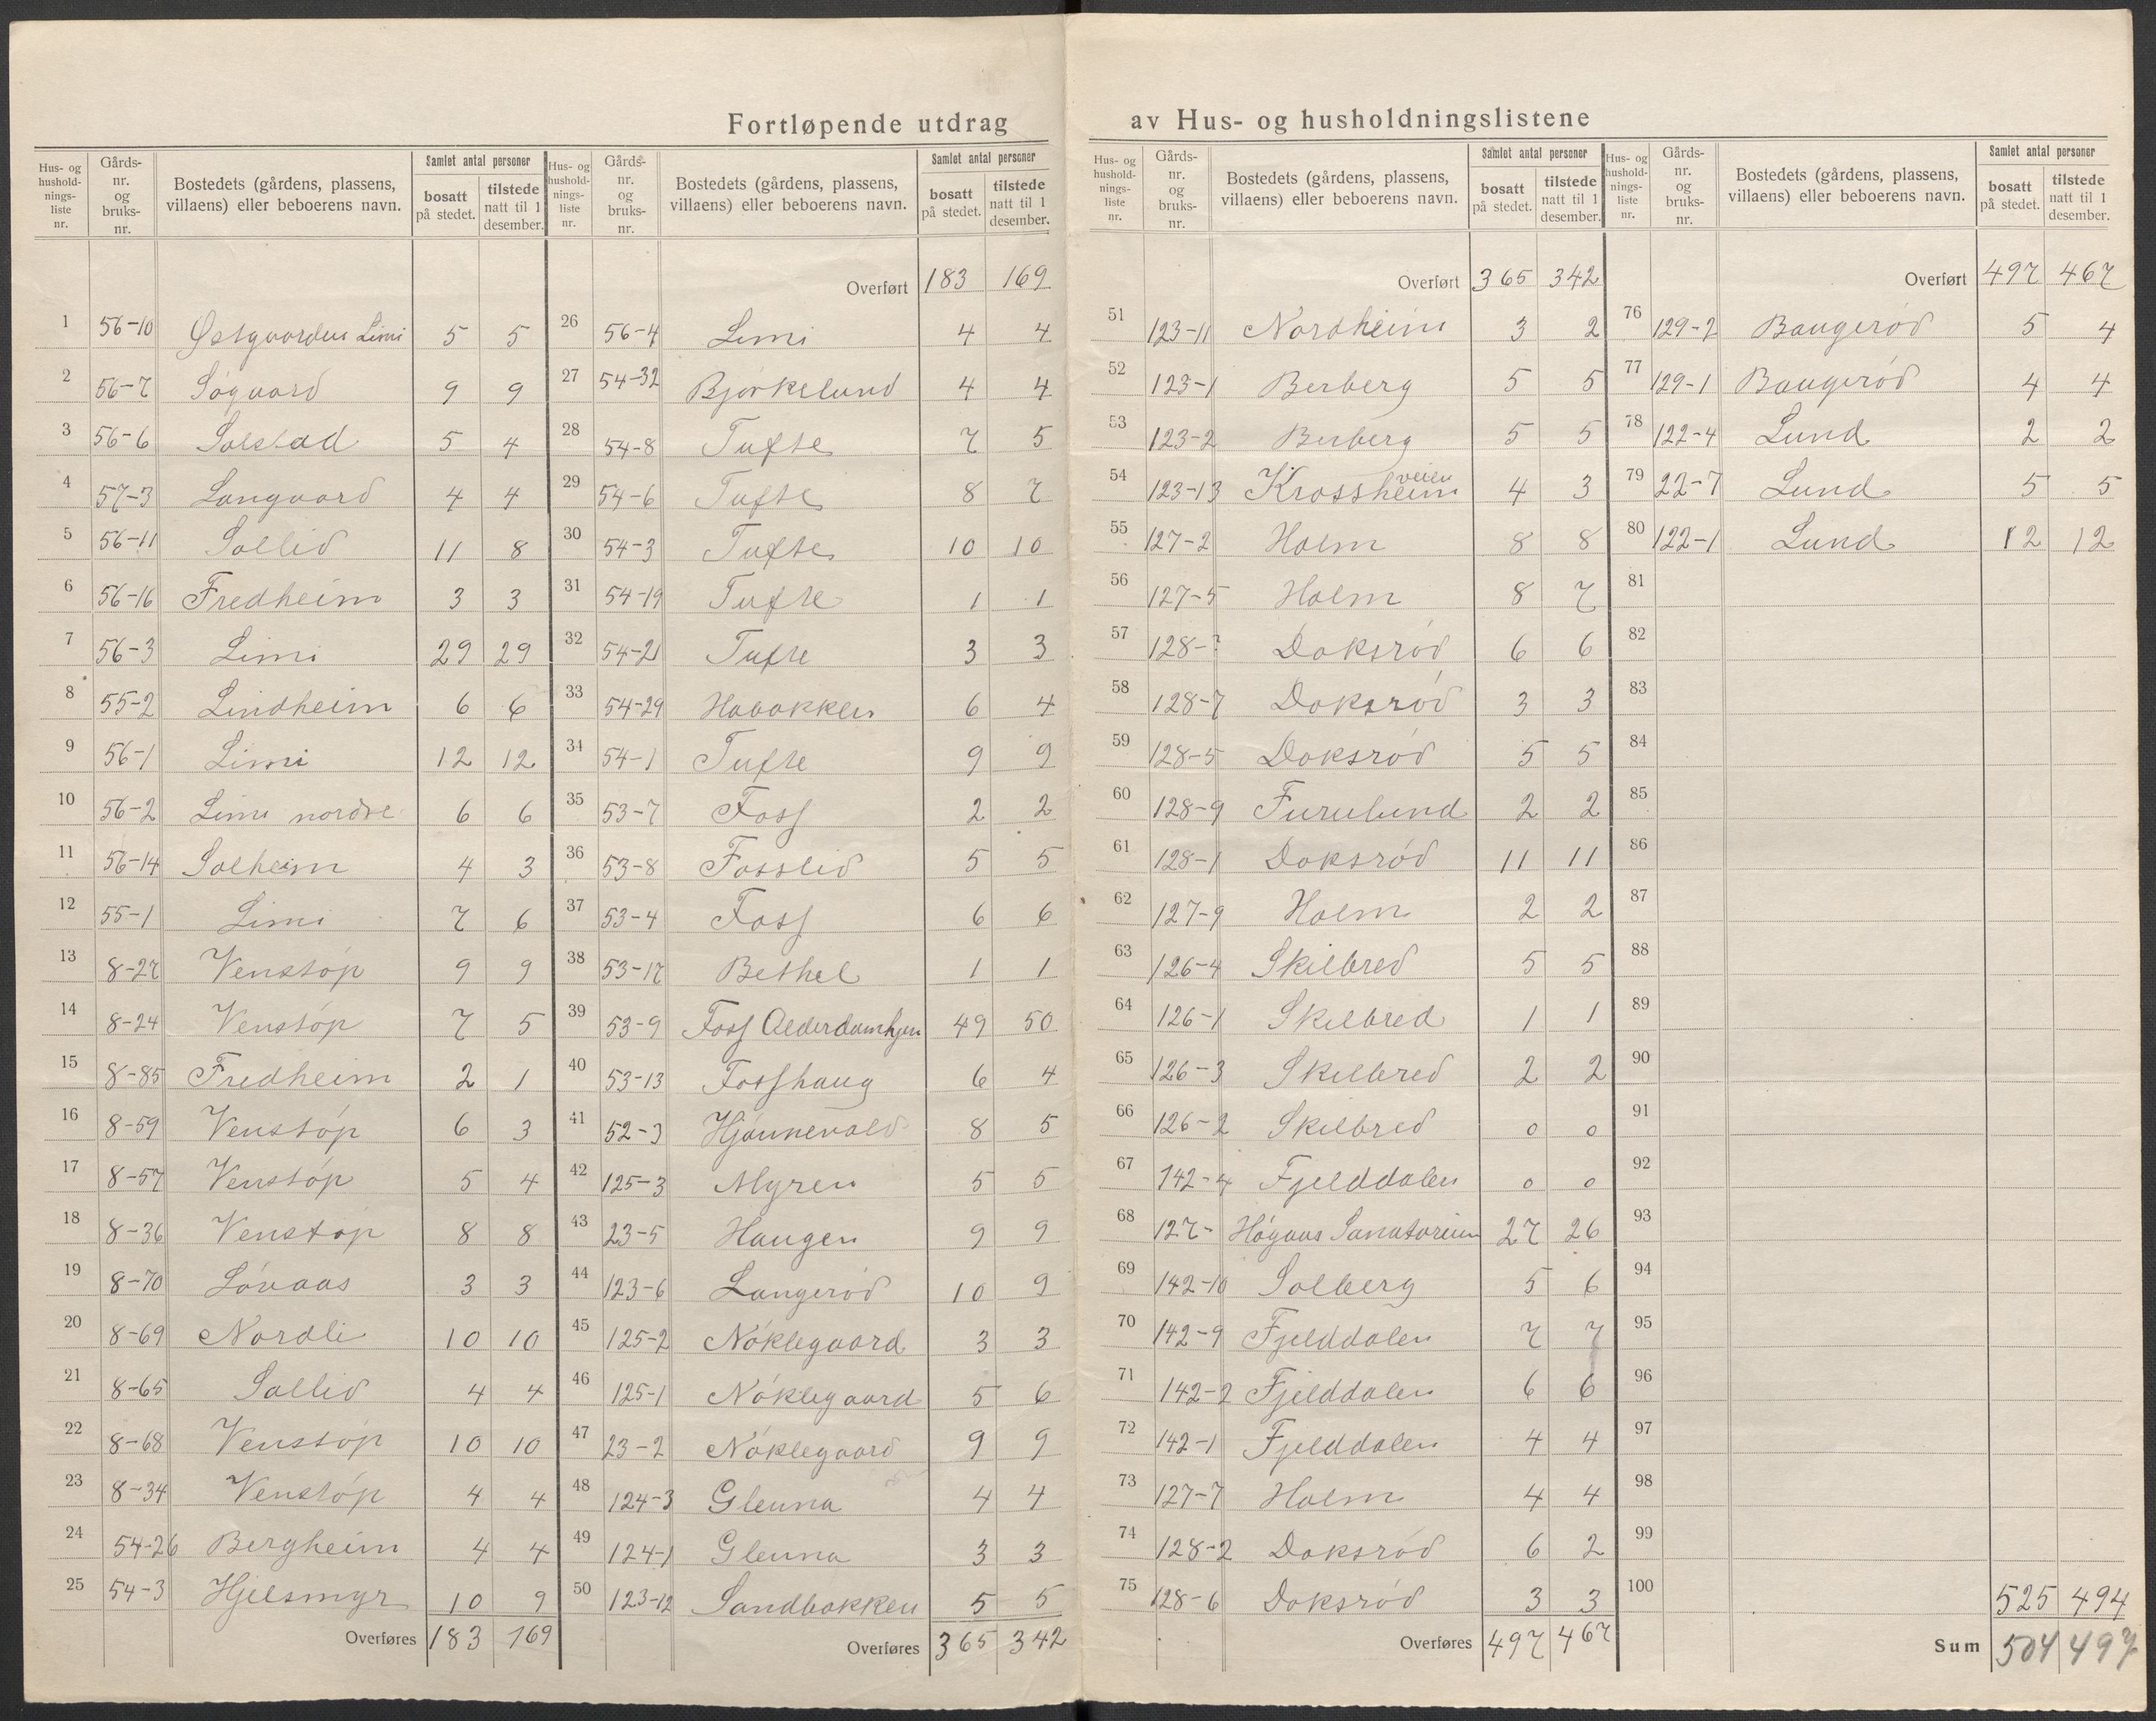 Fortløpende utdrag av Hus- og husholdningslistene
Hus- og husholdnings-liste nr. | Gårds-nr. og bruks-nr. | Bostedets (gårdens, plassens, villaens) eller beboerens navn. | Samlet antal personer | bosatt på stedet. | tilstede natt til 1 desember.
1 56-10 Østgaarden Limi 5 5
2 56-7 Søgaard 9 9
3 56-6 Solstad 5 4
4 57-3 Langaard 4 4
5 56-11 Sollid 11 8
6 56-16 Fredheim 3 3
7 56-3 Limi 29 29
8 55-2 Lindheim 6 6
9 56-1 Limi 12 12
10 56-2 Limi nordre 6 6
11 56-14 Solheim 4 3
12 55-1 Limi 7 6
13 8-27 Venstøp 9 9
14 8-24 Venstøp 7 5
15 8-85 Fredheim 2 1
16 8-59 Venstøp 6 3
17 8-57 Venstøp 5 4
18 8-36 Venstøp 8 8
19 8-70 Løvaas 3 3
20 8-69 Nordli 10 10
21 8-65 Sollid 4 4
22 8-68 Venstøp 10 10
23 8-34 Venstøp 4 4
24 54-26 Bergheim 4 4
25 54-3 Hjelsmyr 10 9
Overføres 183 169
Hus- og husholdnings-liste nr. | Gårds-nr. og bruks-nr. | Bostedets (gårdens, plassens, villaens) eller beboerens navn. | Samlet antal personer | bosatt på stedet. | tilstede natt til 1 desember.
Overført 183 169
26 56-4 Limi 4 4
27 54-32 Bjørkelund 4 4
28 54-8 Tufte 7 5
29 54-6 Tufte 8 7
30 54-3 Tufte 10 10
31 54-19 Tufte 1 1
32 54-21 Tufte 3 3
33 54-29 Haaokken 6 4
34 54-1 Tufte 9 9
35 53-7 Foss 2 2
36 53-8 Fosslid 5 5
37 53-4 Foss 6 6
38 53-17 Bethel 1 1
39 53-9 Foss Alderdomhjem 49 50
40 53-13 Fosshaug 6 4
41 52-3 Hjønnevald 8 5
42 125-3 Myren 5 5
43 23-5 Haugen 9 9
44 123-6 Langerød 10 9
45 125-2 Nøklegaard 3 3
46 125-1 Nøklegaard 5 6
47 23-2 Nøklegaard 9 9
48 124-3 Glenna 4 4
49 124-1 Glenna 3 3
50 123-12 Sandbakken 5 5
Overføres 365 342
Hus- og husholdnings-liste nr. | Gårds-nr. og bruks-nr. | Bostedets (gårdens, plassens, villaens) eller beboerens navn. | Samlet antal personer | bosatt på stedet. | tilstede natt til 1 desember.
Overført 365 342
51 123-11 Nordheim 3 2
52 123-1 Berberg 5 5
53 123-2 Berberg 5 5
54 123-13 Krossheim veien 4 3
55 127-2 Holm 8 8
56 127-5 Holm 8 7
57 128-? Doksrød 6 6
58 128-7 Doksrød 3 3
59 128-5 Doksrød 5 5
60 128-9 Furulund 2 2
61 128-1 Doksrød 11 11
62 127-9 Holm 2 2
63 126-4 Skilbred 5 5
64 126-1 Skilbred 1 1
65 126-3 Skilbred 2 2
66 126-2 Skilbred 0 0
67 142-4 Fjelddalen 0 0
68 127- Høgaas Sanatorium 27 26
69 142-10 Solberg 5 6
70 142-9 Fjelddalen 7 7
71 142-2 Fjelddalen 6 6
72 142-1 Fjelddalen 4 4
73 127-7 Holm 4 4
74 128-2 Doksrød 6 2
75 128-6 Doksrød 3 3
Overføres 497 467
Hus- og husholdnings-liste nr. | Gårds-nr. og bruks-nr. | Bostedets (gårdens, plassens, villaens) eller beboerens navn. | Samlet antal personer | bosatt på stedet. | tilstede natt til 1 desember.
Overført 497 467
76 129-2 Baugerød 5 4
77 129-1 Baugerød 4 4
78 122-4 Lund 2 2
79 22-7 Lund 5 5
80 122-1 Lund 12 12
81
82
83
84
85
86
87
88
89
90
91
92
93
94
95
96
97
98
99
100
525 494
Sum 504 497